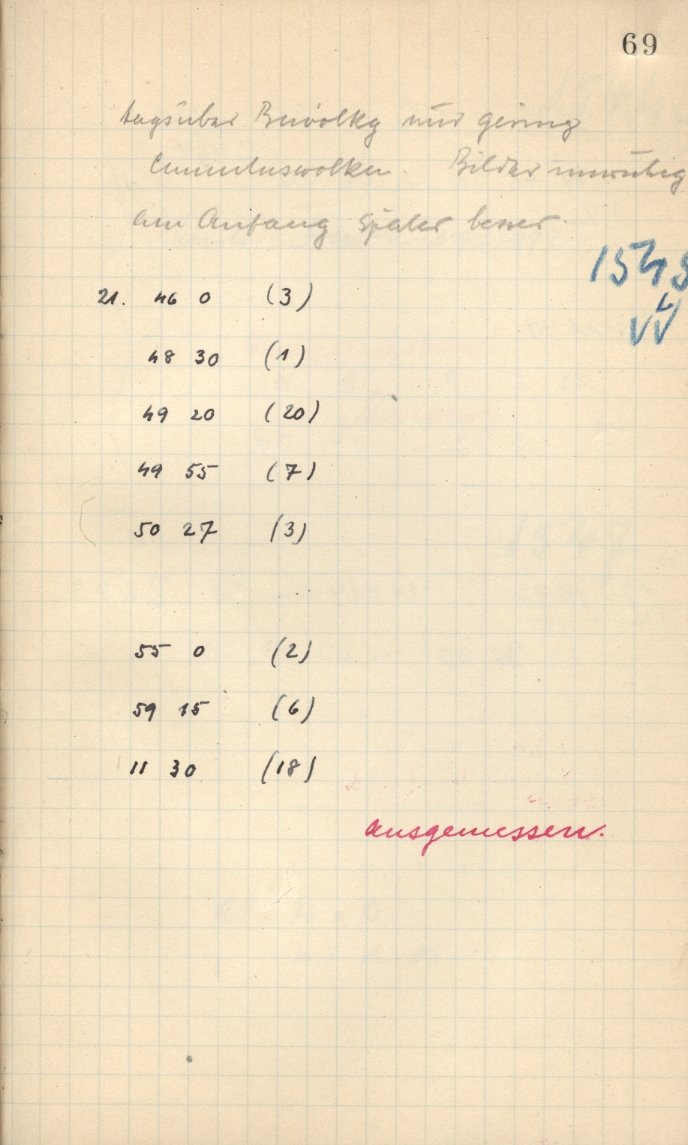 69
tagsüber Bewölkg nur gering
Cumuluswolken. Bilder unruhig
am Anfang später besser
21. 46 0 (3)
48 30 (1)
49 20 (20)
49 55 (7)
50 27 (3)
55 0 (2)
59 15 (6)
11 30 (18)
ausgemessen.